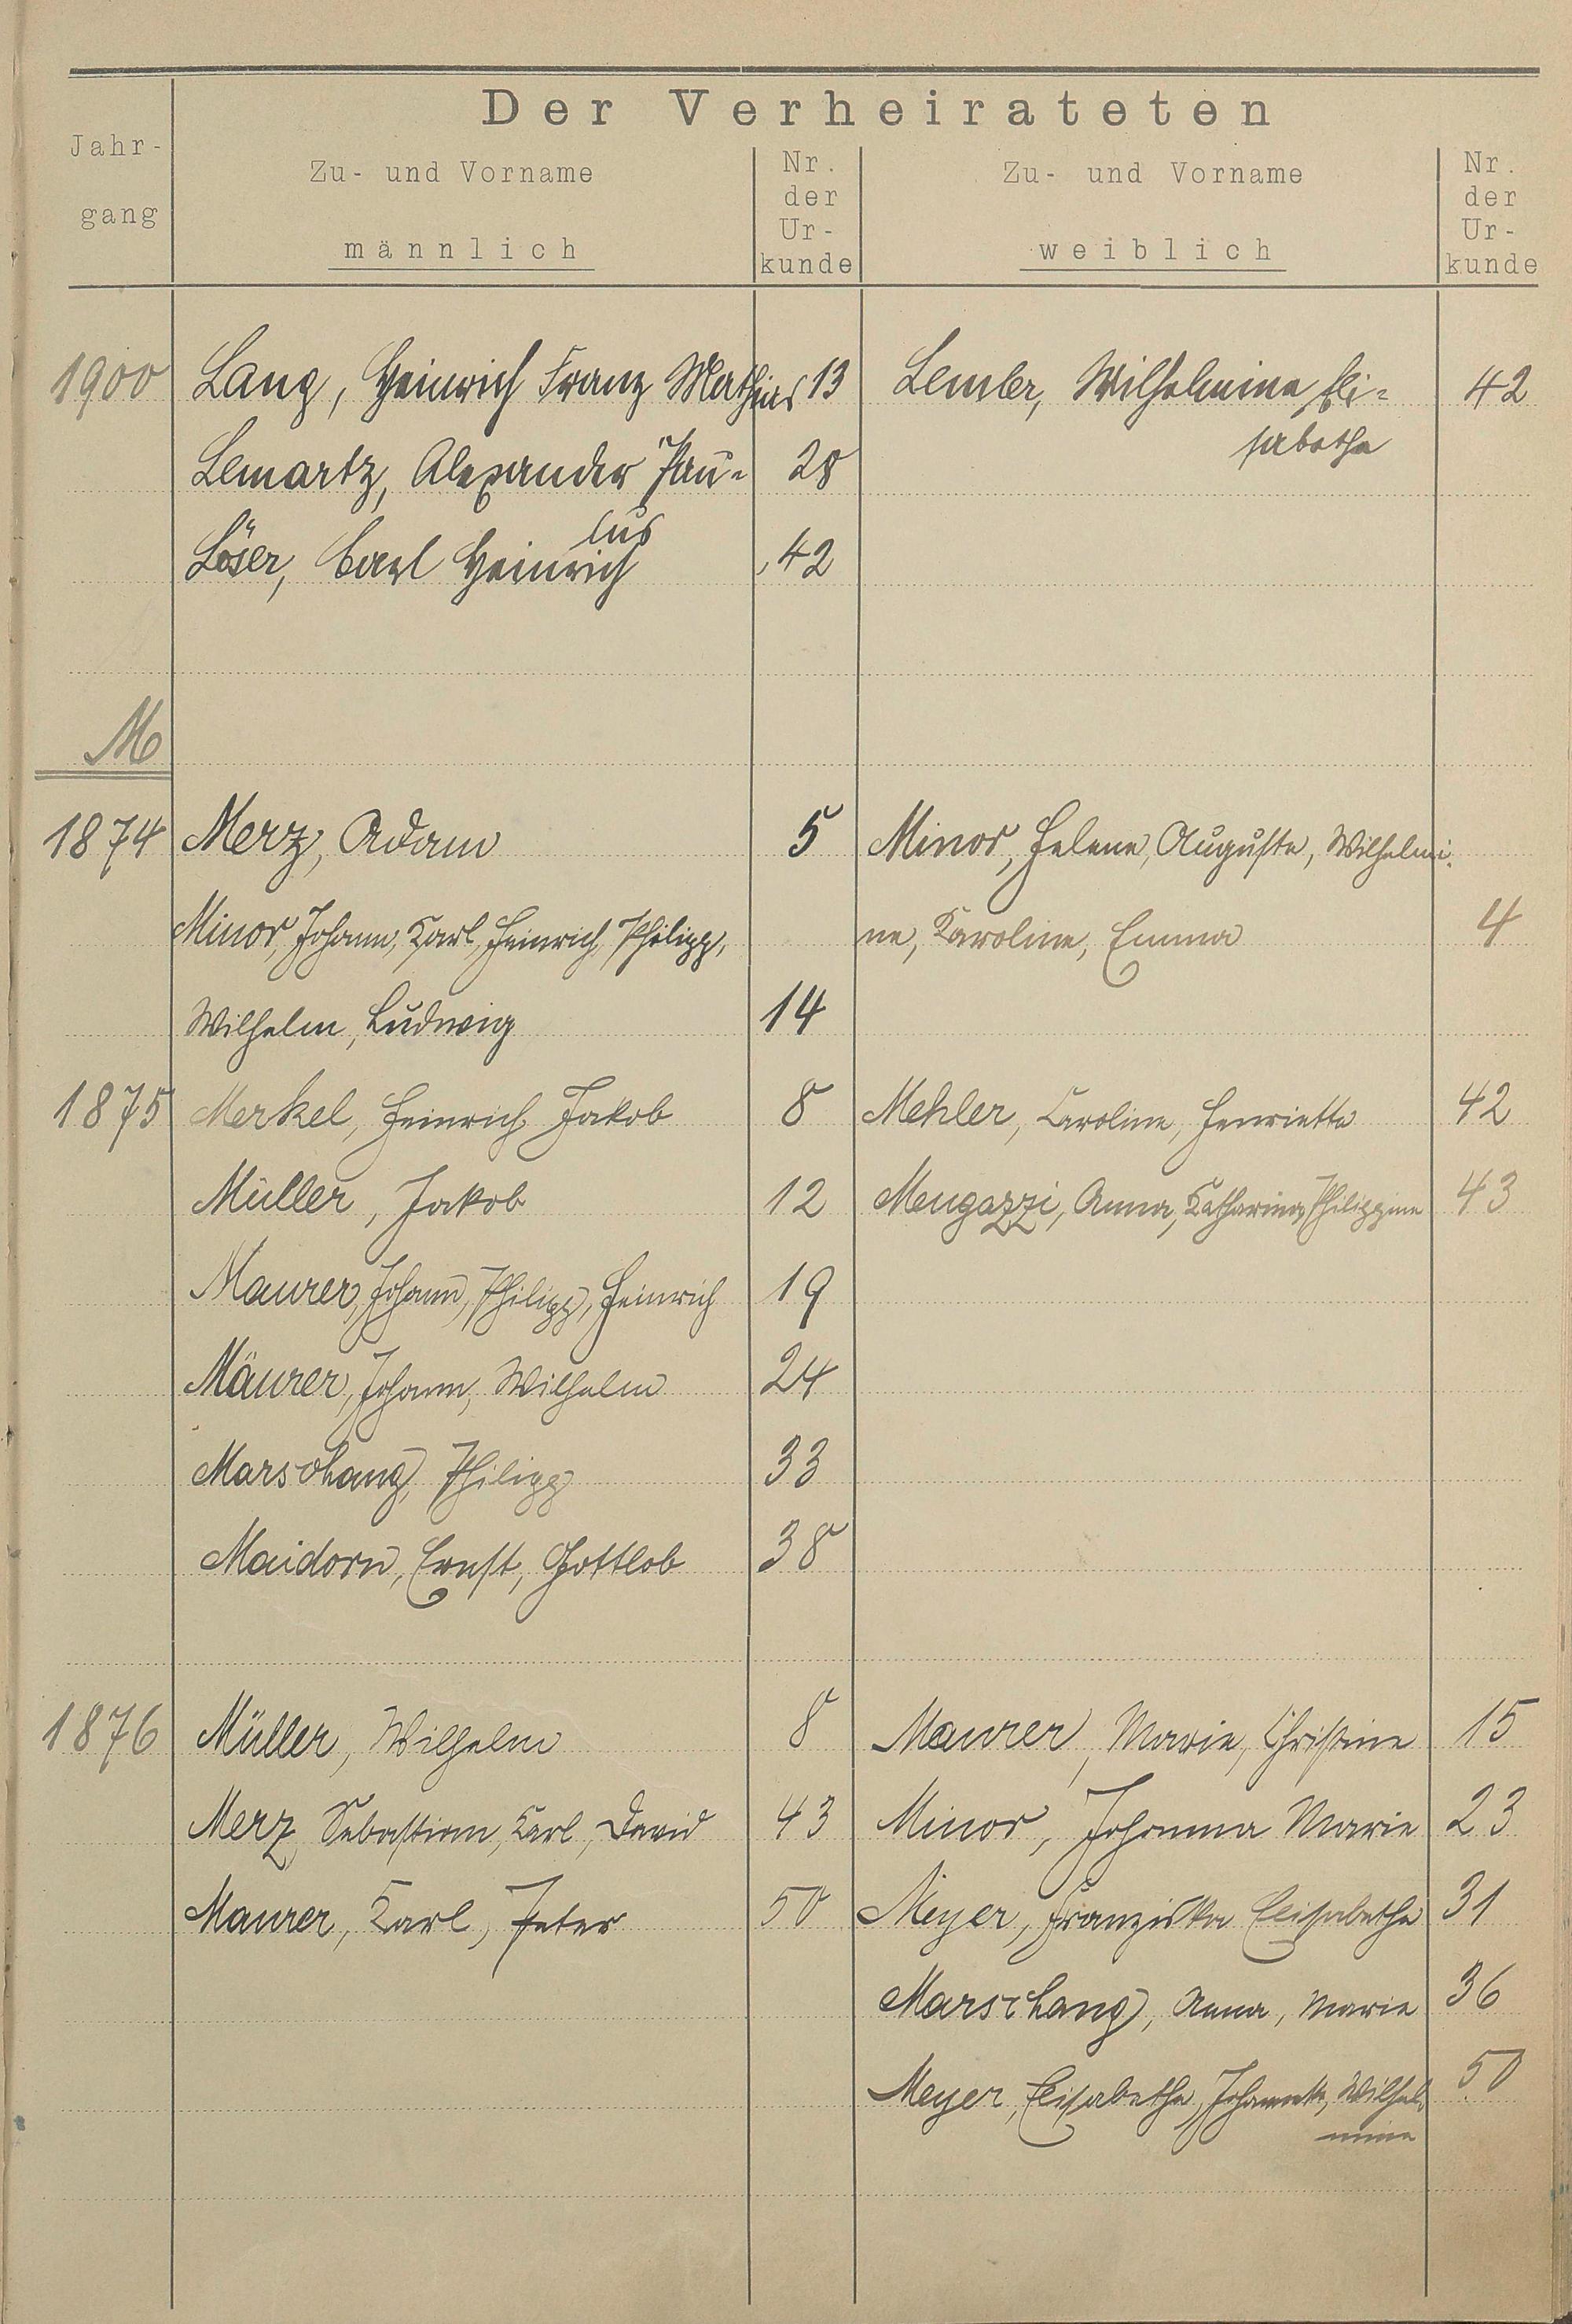 Der Verheirateten
Jahr-
gang
Zu- und Vorname
männlich
Nr.
der
Ur-
kunde
Zu- und Vorname
weiblich
Nr.
der
Ur-
kunde
1900 Lang, Heinrich Franz Mathias 13 Lemler, Wilhelmine Eli= 42
sabetha
Lemartz, Alexander Pau= 28
lus
Löser, Carl Heinrich 42
M
1874 Merz, Adam 5 Minor, Helene, Auguste, Wilhelmi-
Minor, Johann, Karl, Heinrich, Philipp, ne, Karoline, Emma 4
Wilhelm, Ludwig 14
1875 Merkel, Heinrich Jakob 8 Mehler, Caroline, Henriette 42
Müller, Jakob 12 Mengazzi, Anna, Katharina, Philippine 43
Maurer, Johann, Philipp, Heinrich 19
Mäurer, Johann, Wilhelm 24
Marschang, Philipp 33
Maidorn, Ernst, Gottlob 38
1876 Müller, Wilhelm 8 Maurer, Marie, Christine 15
Merz, Sebastian, Karl, David 43 Minor, Johanna Marie 23
Maurer, Karl, Peter 50 Meyer, Franziska Elisabetha 31
Marschang, Anna, Marie 36
Meyer, Elisabetha, Johannette, Wilhel- 50
mine